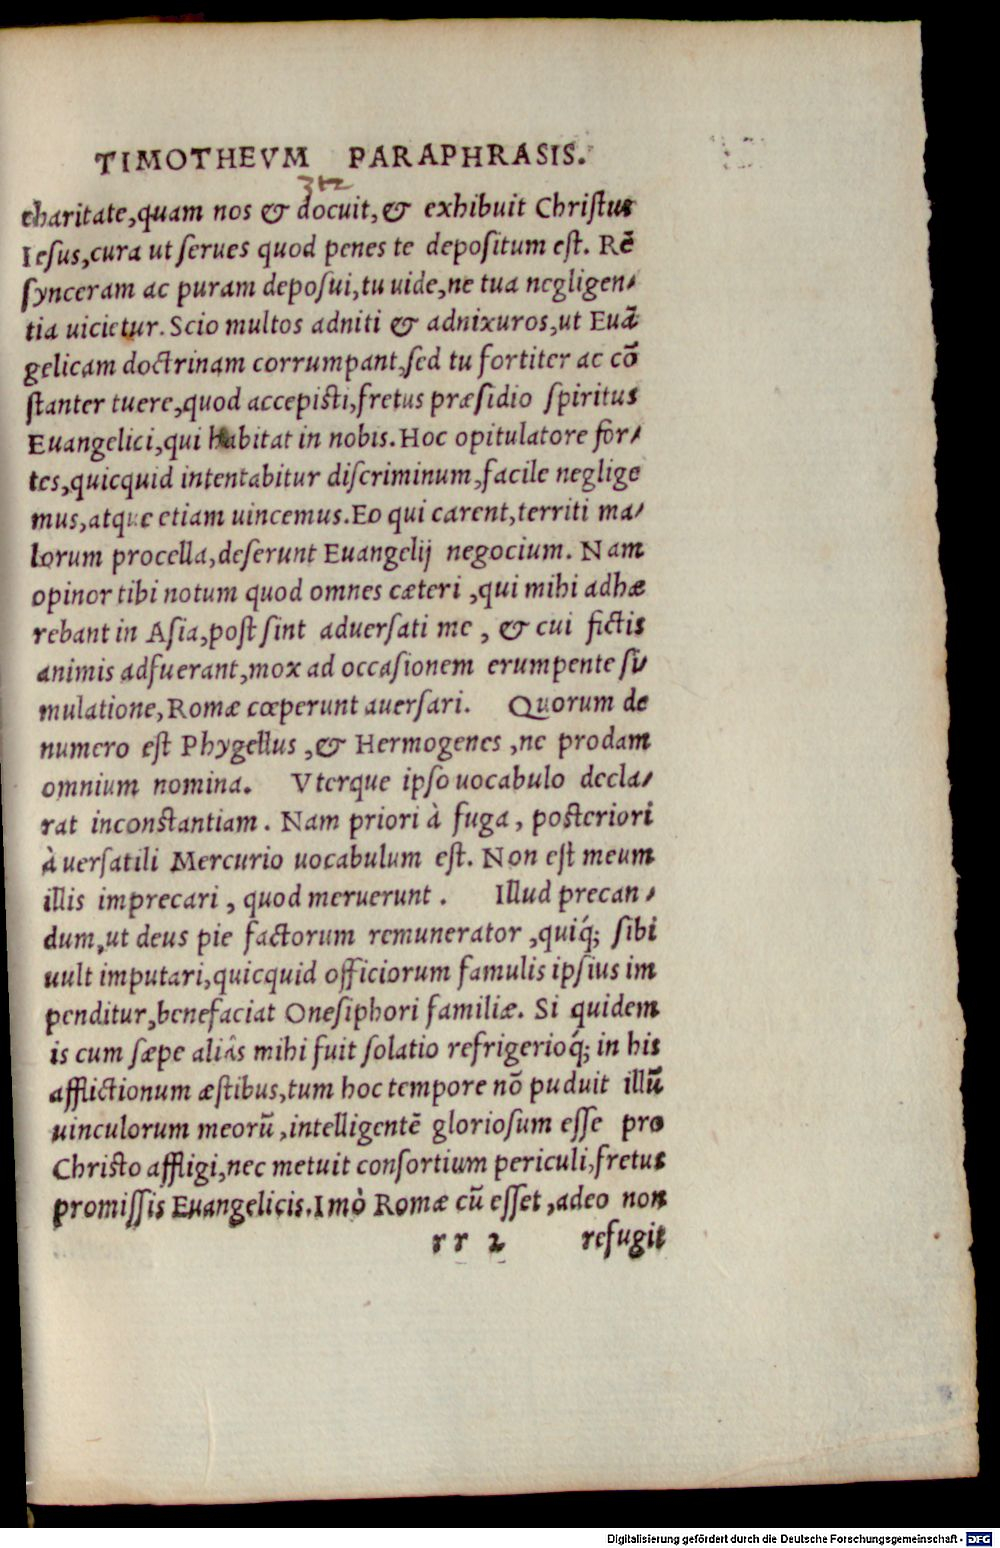 TIMOTHEVM PARAPHRASIS.
312
charitate,quam nos & docuit,& exhibuit Christus
Iesus,cura ut serues quod penes te depositum est. Rē
synceram ac puram deposui,tu uide,ne tua negligen-
tia uicietur. Scio multos adniti & adnixuros,ut Euā
gelicam doctrinam corrumpant,sed tu fortiter ac cō
stanter tuere,quod accepisti,fretus præsidio spiritus
Euangelici,qui habitat in nobis. Hoc opitulatore for-
tes,quicquid intentabitur discriminum,facile neglige
mus,atque etiam uincemus. Eo qui carent,territi ma-
lorum procella,deserunt Euangelij negocium. Nam
opinor tibi notum quod omnes cæteri ,qui mihi adhæ
rebant in Asia,post sint aduersati me , & cui fictis
animis adfuerant,mox ad occasionem erumpente si-
mulatione,Romæ cœperunt auersari. Quorum de
numero est Phygellus ,& Hermogenes ,ne prodam
omnium nomina. Vterque ipso uocabulo decla-
rat inconstantiam . Nam priori à fuga , posteriori
à uersatili Mercurio uocabulum est. Non est meum
illis imprecari , quod meruerunt . Illud precan-
dum,ut deus pie factorum remunerator ,quiq́; sibi
uult imputari,quicquid officiorum famulis ipsius im
penditur,benefaciat Onesiphori familiæ. Si quidem
is cum sæpe aliâs mihi fuit solatio refrigerioq́; in his
afflictionum æstibus,tum hoc tempore nō puduit illū
uinculorum meorū ,intelligentē gloriosum esse pro
Christo affligi,nec metuit consortium periculi,fretus
promissis Euangelicis.Imò Romæ cū esset ,adeo non
rr 2 refugit
Digitalisierung gefördert durch die Deutsche Forschungsgemeinschaft - DFG